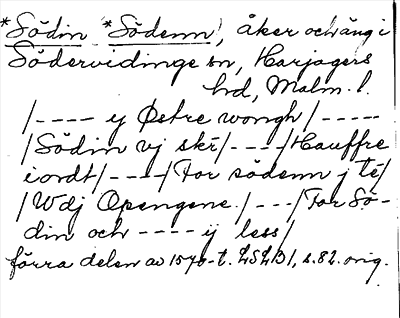 *Södin *Södenn, åker och äng i
Södervidinge sn, Harjagers
hd, Malm. l.
/---- ij Østre wongh/-----
/Södin vj skr/----/Hauffre
iordt/----/For södenn j te/
/Wdj Opengene/---/For Sö-
din och ---- ij less/
förra delen av 1570-t. LSLB1, s. 82. orig.